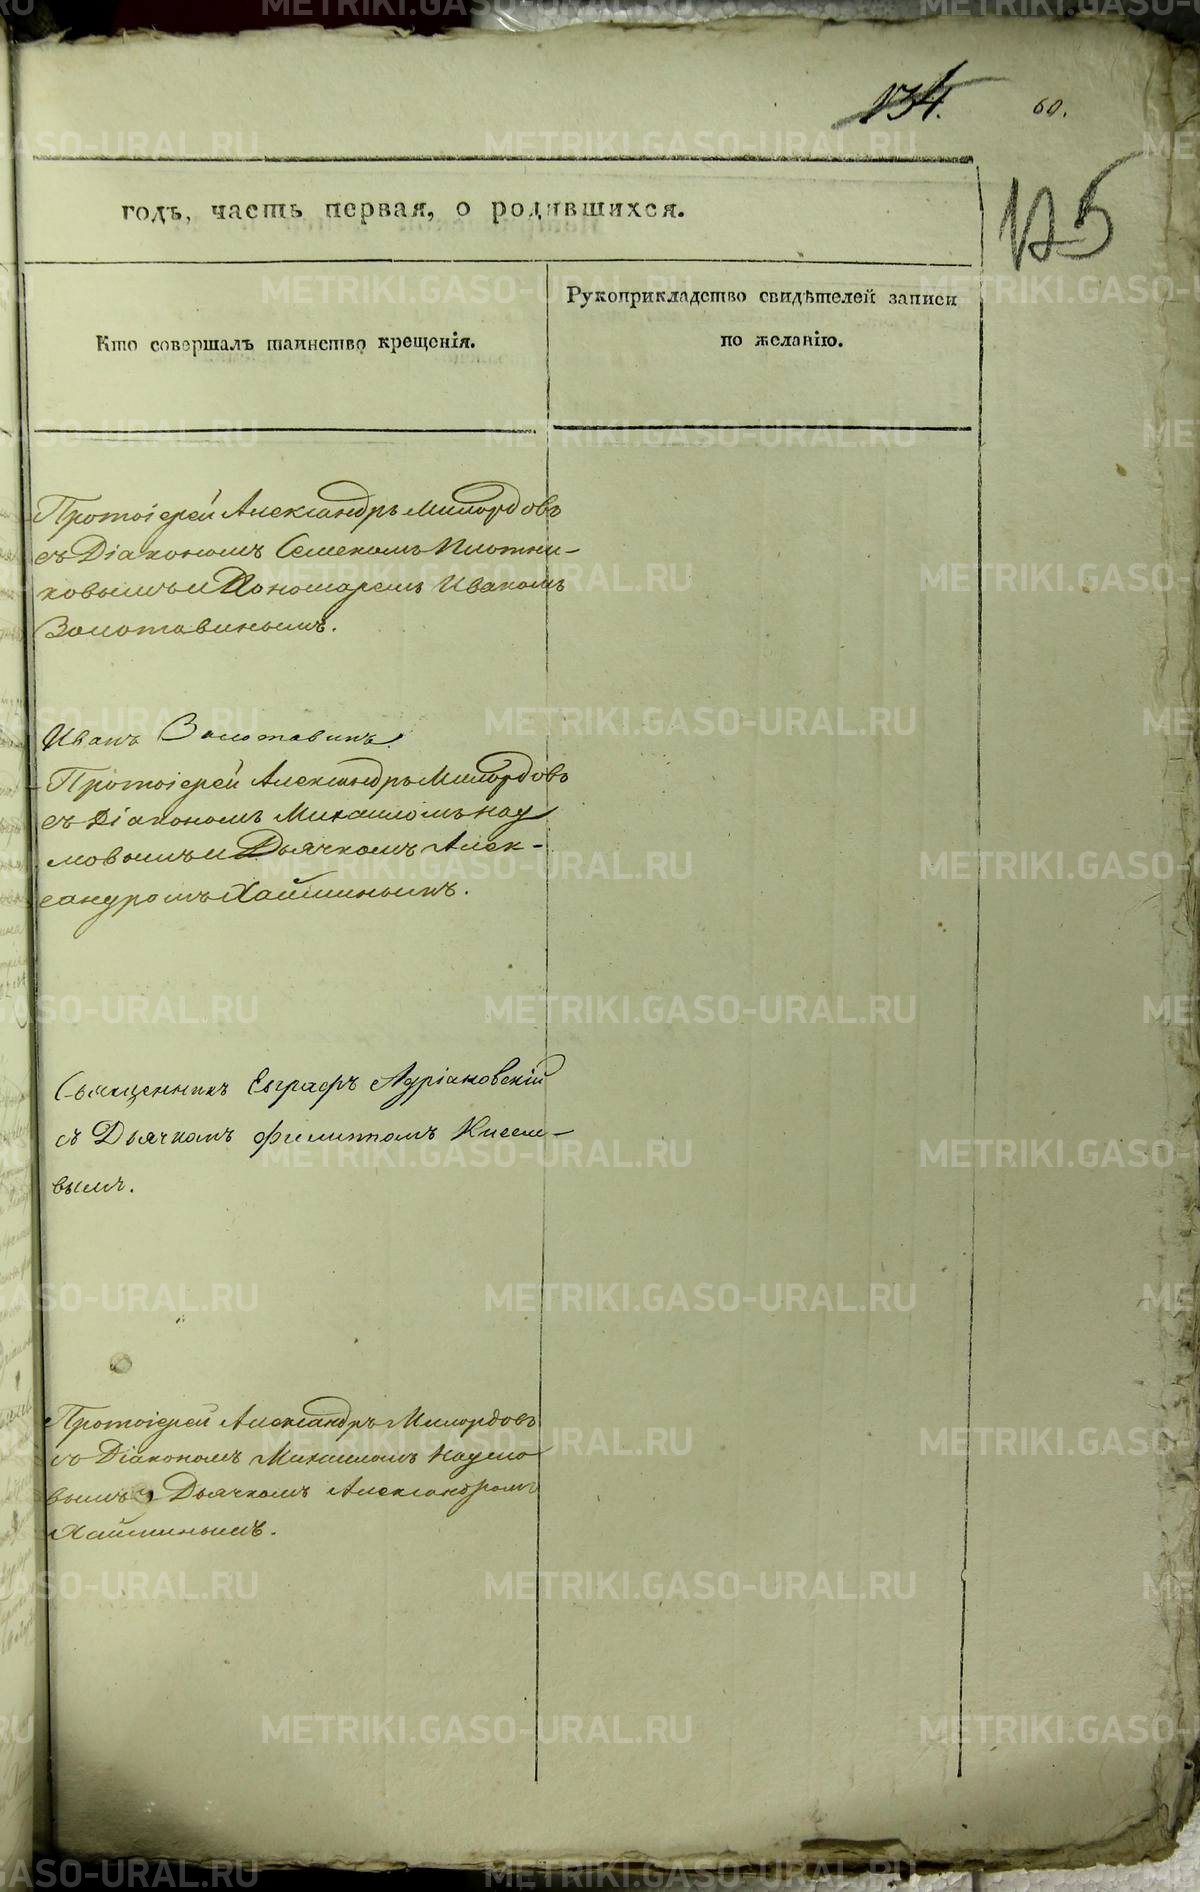 134.
60.
125
годъ, часть первая, о родившихся.
Кто совершалъ таинство крещенія.
Рукоприкладство свидѣтелей записи
по желанію.
Протоіерей Александръ Милордовъ
съ Діакономъ Семеномъ Плотни-
ковымъ и Пономаремъ Иваномъ
Золотавинымъ.
Иванъ Золотавинъ.
Протоіерей Александръ Милордовъ
съ Діакономъ Михаиломъ Нау
мовымъ и Дьячкомъ Алек-
сандромъ Хайминымъ.
Священникъ Евграфъ Адріановскій
съ Дьячкомъ Филиппомъ Кисele-
вымъ.
Протоіерей Александръ Милордовъ
со Діакономъ Михаиломъ Наумо
вымъ и Дьячкомъ Александромъ
Хайминымъ.
METRIKI.GASO-URAL.RU